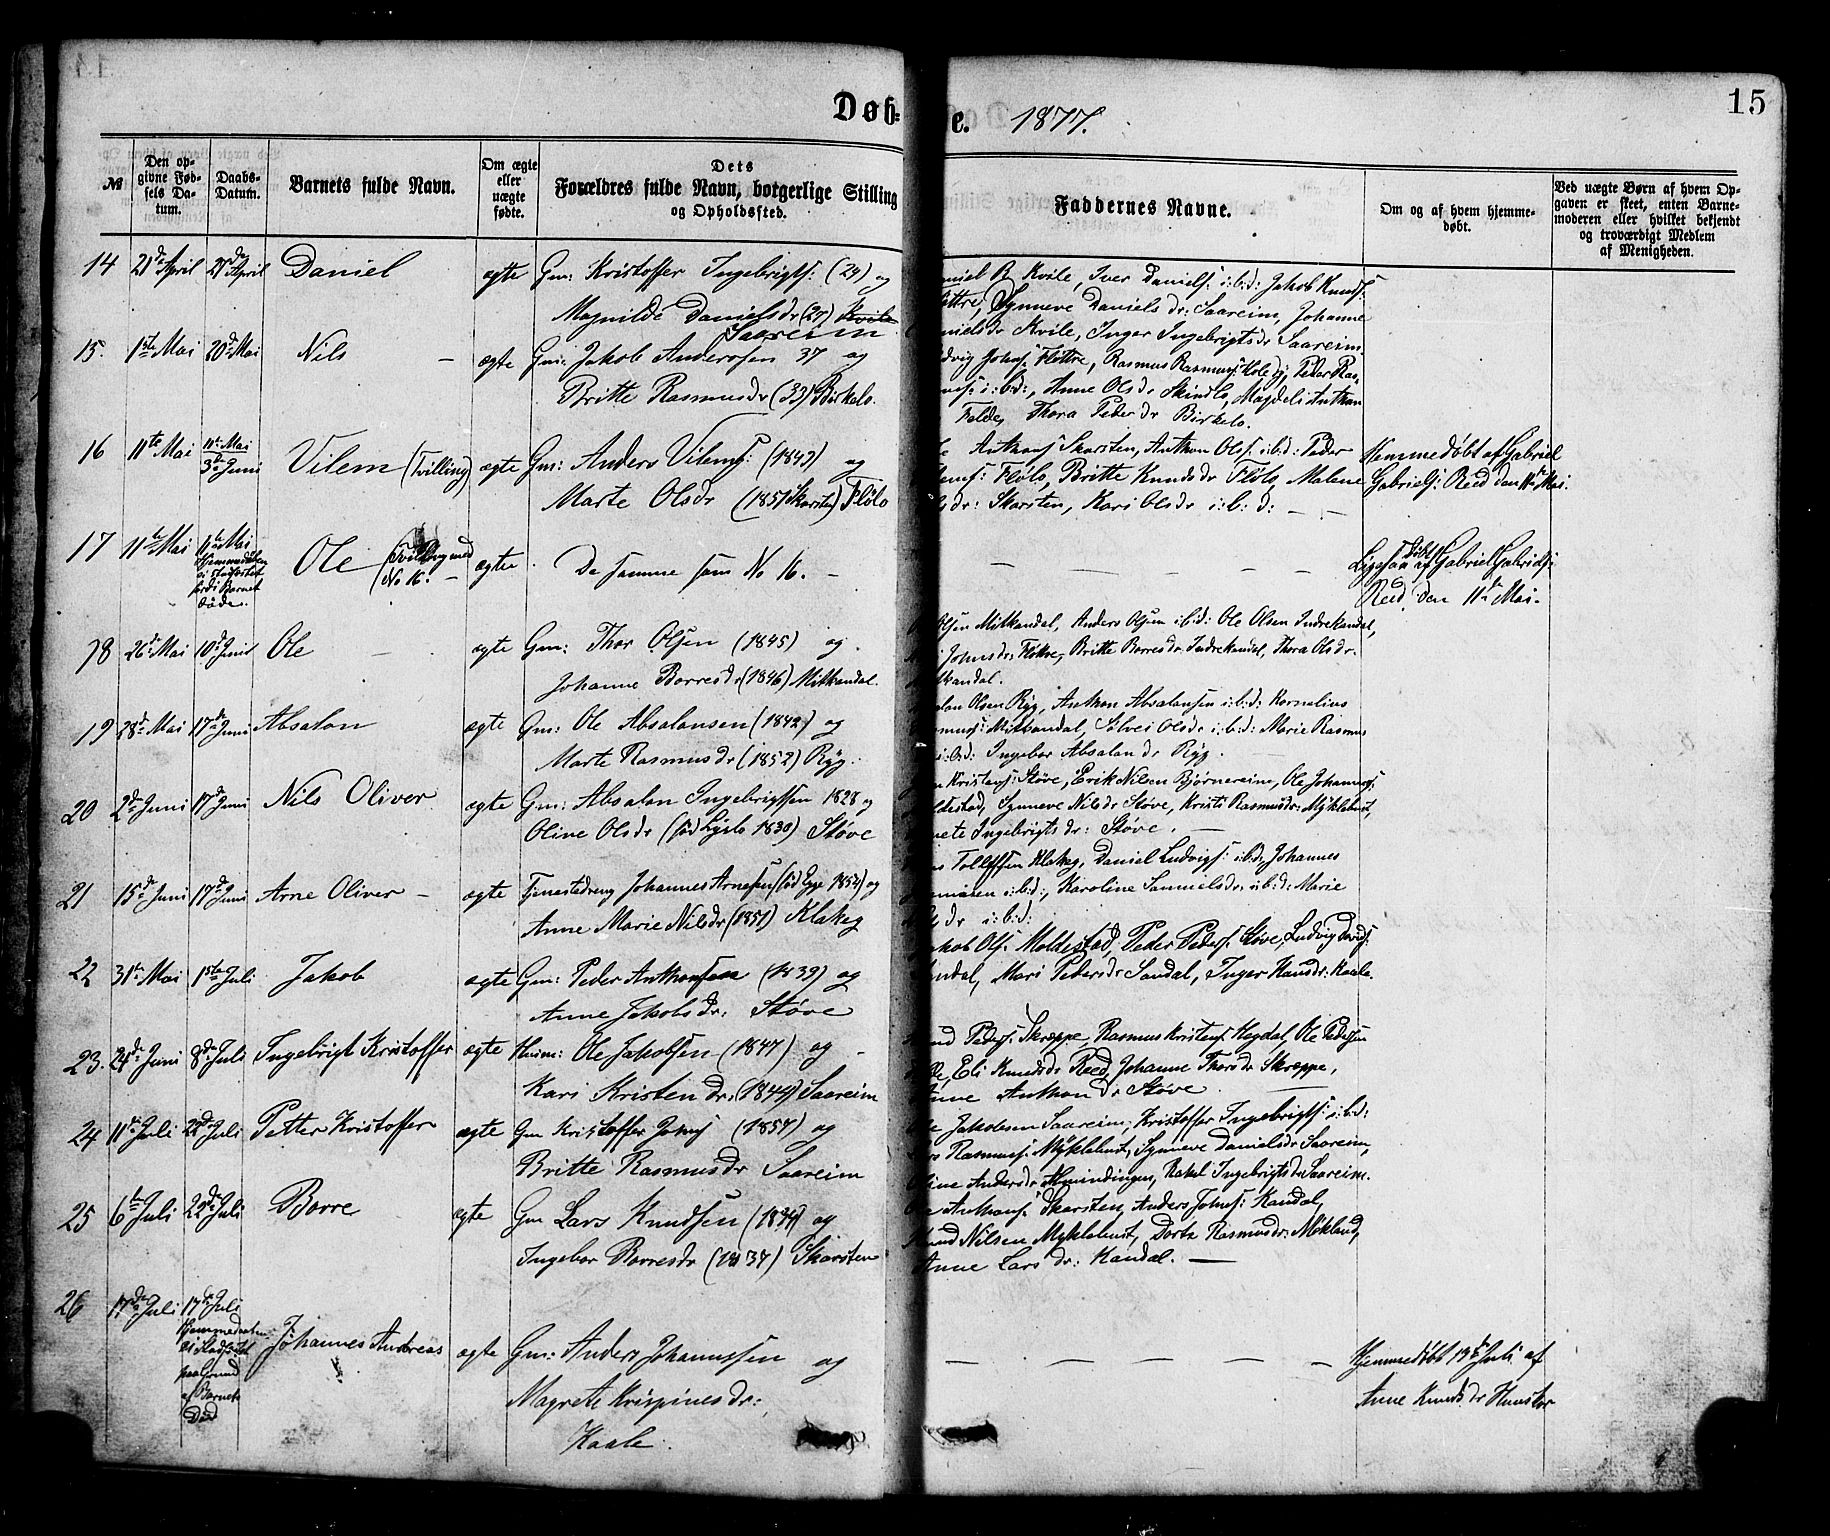 Døb=
e. 1877.
15
№
Den opgivne Fødsels Datum.
Daabs-Datum.
Barnets fulde Navn.
Om ægte eller uægte fødte.
Dets Forældres fulde Navn, borgerlige Stilling og Opholdssted.
Faddernes Navne.
Om og af hvem hjemmedøbt.
Ved uægte Børn af hvem Opgaven er skeet, enten Barnemoderen eller hvilket bekjendt og troværdigt Medlem af Menigheden.
14 21de April 29de April Daniel ægte Gm: Kristoffer Ingebrigts: (29) og
Magnilde Danielsdr (27) Kvile
Saareim
Daniel R Kvile, Iver Daniels: i:b:d: Jakob Knuds:
Fløttre, Synneve Daniels dr: Saareim, Johanne
Danielsdr Kvile, Inger Ingebrigtsdr Saareim.
15. 1ste Mai 20de Mai Nils – ægte Gm: Jakob Anderssen 37 og
Britte Rasmusdr (33) Birkelo.
Ludvig Johns: Fløttre, Rasmus Rasmus: Peder Ras
mus: i:b:d:, Anne Olsdr Skinlo, Magdeli Anthon
Felde, Thora Peder dr Birkelo.
16 11te Mai 11te Mai 3de Juni Vilem (Tvilling) ægte Gm: Anders Vilems: (1843) og
Marte Olsdr (1851 Skarsten) Fløto
Anthons: Skarsten, Anthon Ols: i:b:d: Peder
Fløto, Britte Knudsdr Fløto, Malene
Olsdr: Skarsten, Kari Olsdr i:b:d: – –
Hjemmedøbt af Gabriel
Gabriels: Reed den 11te Mai.
17 11te Mai 11te Mai Hjemmedaaben ei stadfæstet fordi Barnet døde. Ole (Tvilling med No 16. – ægte De samme som No 16. –
Ligesaa døbt af Gabriel Gabriels:
Reed, den 11te Mai.
18 26de Mai 10de Juni Ole – ægte Gm: Thor Olsen (1845) og
Johanne Borresdr (1846) Mitkandal.
Olsen Mitkandal, Anders Olsen i:b:d: Ole Olsen Indrekandal,
Johnsdr: Fløttre, Britte Borresdr. Indrekandal, Thora Olsdr.
Mitkandal.
19 28de Mai 17de Juni Absalon ægte Gm: Ole Absalonsen (1842) og
Marte Rasmusdr (1852) Ryg.
Absalon Olsen Ryg, Anthon Absalonsen i:b:d: Kornelius
Rasmus: Mitkandal, Sølvei Olsdr i:b:d: Marie Rasmus
i:b:d: Ingebor Absalon dr Ryg.
20 2de Juni 17de Juni Nils Oliver ægte Gm: Absalon Ingebrigtsen 1828 og
Oline Olsdr (fød 1830) Støve
Kristens: Støve, Erik Nilsen Bjørnereim, Ole Johannes:
Moldestad, Synneve Nilsdr Støve, Kristi Rasmusdr: Myklebust,
Ingebrigts dr: Støve. –
21 15de Juni 17de Juni Arne Oliver – ægte Tjenestedreng Johannes Arnesen (fød 1854) og
Anne Marie Nilsdr (1851) Klakeg
Tollefssen Klakeg, Daniel Ludvigs: i:b:d: Johannes
i:b:d:, Karoline Samuelsdr: i:b:d: Marie
dr i:b:d:
22 31te Mai 1ste Juli Jakob ægte Gm: Peder Anthonsen (1839) og
Anne Jakobsdr: Støve
Jakob Ols: Moldestad, Peder Peders: Støve, Ludvig Davids:
Sandal, Mari Pedersdr Sandal, Inger Hansdr: Kaale.
23. 24de Juni 8de Juli Ingebrigt Kristoffer ægte Husm: Ole Jakobsen (1847) og –
Kari Kristen dr: (1844) Saareim
Peders: Skreppe, Rasmus Kristens: Hegdal, Ole Pedersen
Eli Knudsdr Reed, Johanne Thorsdr Skreppe,
Anne Anthon dr Støve
24 11te Juli 22de Juli Petter Kristoffer ægte Gm Kristoffer Johns: (1857) og
Britte Rasmusdr Saareim
Jakobsen Saareim, Kristoffer Ingebrigts: i:b:d:
Rasmus: Myklebust, Synneve Danielsdr Saareim,
Andersdr Almindingen, Rakel Ingebrigtsdr Saareim.
25 6te Juli 22de Juli Borre ægte Gm Lars Knudsen (1834) og
Ingebor Borresdr (1834) Skarsten
Anthons: Skarsten, Anders Johns: Kandal,
Nilsen Myklebust, Dorte Rasmusdr: Mykland,
Anne Lars dr: Kandal. –
26 17de Juli 17de Juli Hjemmedaaben ei stadfæstet paa Grund af Barnets Død Johannes Andreas ægte Gm: Anders Johannessen og
Magrete Krispinusdr:
Kaale.
Hjemmedøbt 19de Juli af
Anne Knudsdr Hunskor